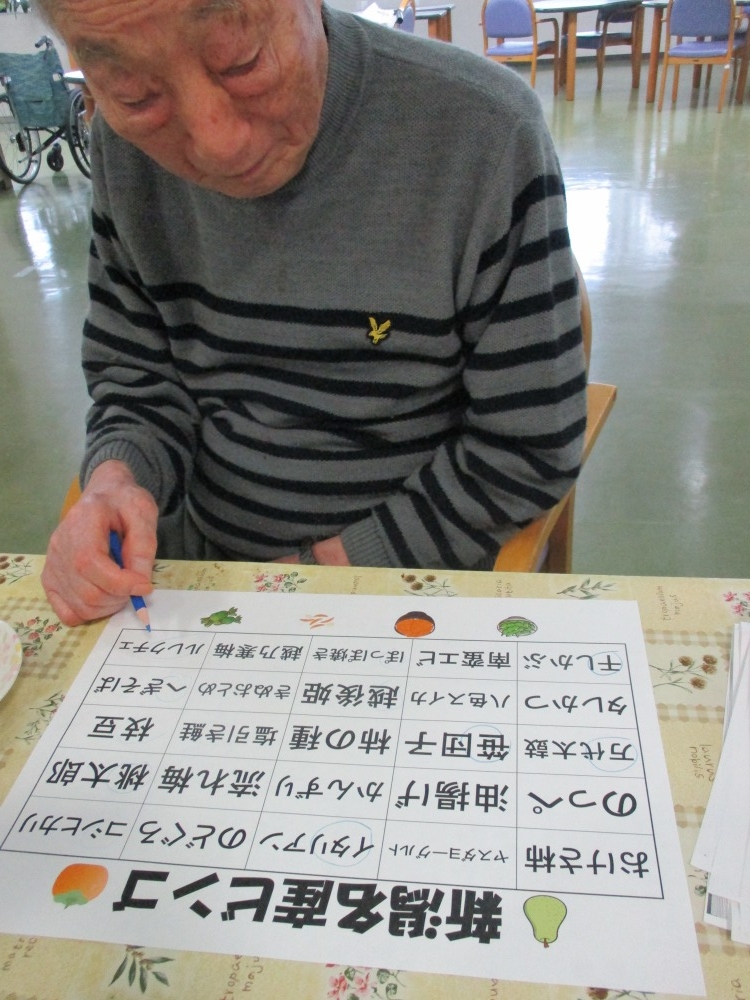 新潟名産ビンゴ
おけさ柿 ヤスダヨーグルト イタリアン のどぐろ コシヒカリ
のっぺ 油揚げ かんずり 流れ梅 桃太郎
万代太鼓 笹団子 柿の種 塩引き鮭 枝豆
タレかつ 八色スイカ 越後姫 きぬおとめ へぎそば
干しかぶ 南蛮エビ ぽっぽ焼き 越乃寒梅 ルレクチェ
laurus
nobilis